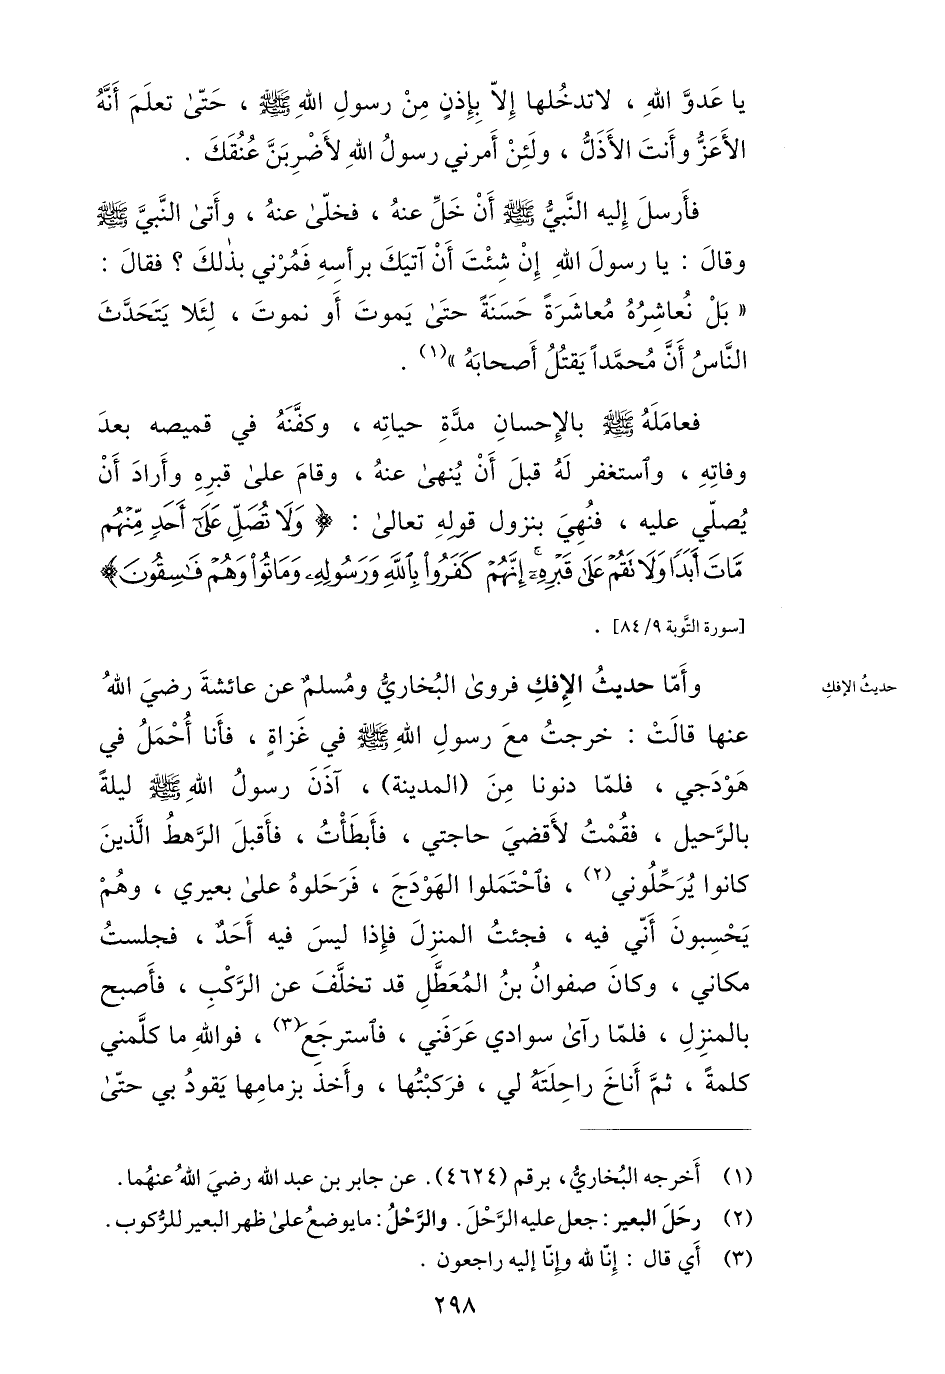 يا عَدوَّ اللهِ ، لاتدخُلها إِلاّ بِإِذنٍ مِنْ رسولِ اللهِ ﷺ ، حَتّىٰ تعلَمَ أَنَّهُ
الأَعَزُّ وأَنتَ الأَذَلُّ ، ولَئِنْ أَمرني رسولُ اللهِ لأَضْرِبَنَّ عُنُقَكَ .
فأَرسلَ إِليه النَّبيُّ ﷺ أَنْ خَلِّ عنهُ ، فخلّىٰ عنهُ ، وأَتىٰ النَّبيَّ ﷺ
وقالَ : يا رسولَ اللهِ إِنْ شِئْتَ أَنْ آتيَكَ برأسِهِ فَمُرْني بذٰلكَ ؟ فقالَ :
« بَلْ نُعاشِرُهُ مُعاشَرَةً حَسَنَةً حتىٰ يَموتَ أَو نموتَ ، لِئَلا يَتَحَدَّثَ
النَّاسُ أَنَّ مُحمَّداً يَقتُلُ أَصحابَهُ »(١) .
فعامَلَهُ ﷺ بالإِحسانِ مدَّةِ حياتِه ، وكفَّنَهُ في قميصه بعدَ
وفاتِهِ ، وٱستغفر لَهُ قبلَ أَنْ يُنهىٰ عنهُ ، وقامَ علىٰ قبرِهِ وأَرادَ أَنْ
يُصلّي عليه ، فنُهِيَ بنزول قولِهِ تعالىٰ : ﴿ وَلَا تُصَلِّ عَلَىٰٓ أَحَدٍ مِّنْهُم
مَّاتَ أَبَدًا وَلَا نَقُمْ عَلَىٰ قَبْرِهِۦٓ ۚ إِنَّهُمْ كَفَرُوا۟ بِٱللَّهِ وَرَسُولِهِۦ وَمَاتُوا۟ وَهُمْ فَـٰسِقُونَ﴾
[سورة التَّوبة ٩/ ٨٤] .
وأَمّا حديثُ الإِفكِ فروىٰ البُخاريُّ ومُسلمٌ عن عائشةَ رضيَ اللهُ
حديثُ الإفكِ
عنها قالَتْ : خرجتُ معَ رسولِ اللهِ ﷺ في غَزاةٍ ، فأَنا أُحْمَلُ في
هَوْدَجي ، فلمّا دنونا مِنَ (المدينة) ، آذَنَ رسولُ اللهِ ﷺ ليلةً
بالرَّحيل ، فقُمْتُ لأَقضيَ حاجتي ، فأَبطَأْتُ ، فأَقبلَ الرَّهطُ الَّذينَ
كانوا يُرَحِّلُوني(٢) ، فٱحْتَملوا الهَوْدَجَ ، فَرَحَلوهُ علىٰ بعيري ، وهُمْ
يَحْسِبونَ أَنّي فيه ، فجئتُ المنزلَ فإِذا ليسَ فيه أَحَدٌ ، فجلستُ
مكاني ، وكانَ صفوانُ بنُ المُعَطَّلِ قد تخلَّفَ عن الرَّكْبِ ، فأَصبح
بالمنزِلِ ، فلمّا رآىٰ سوادي عَرَفَني ، فٱسترجَعَ(٣) ، فواللهِ ما كلَّمني
كلمةً ، ثمَّ أَناخَ راحِلَتَهُ لي ، فرَكبْتُها ، وأَخذَ بزمامِها يَقودُ بي حتّىٰ
(١) أَخرجه البُخاريُّ، برقم (٤٦٢٤). عن جابر بن عبد الله رضيَ اللهُ عنهُما.
(٢) رحَلَ البعير : جعل عليه الرَّحْلَ. والرَّحْلُ : مايوضعُ علىٰ ظهر البعير للرُّكوب.
(٣) أَي قال : إِنّا لله وإِنّا إليه راجعون .
٢٩٨